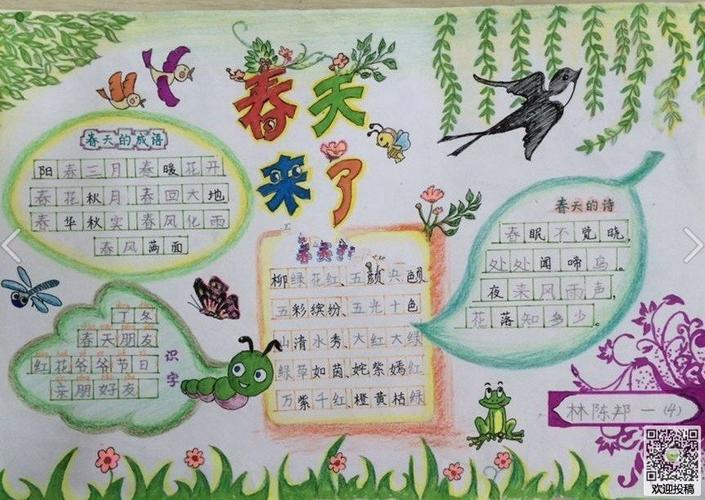 春天
来了
春天的成语
阳春三月 春暖花开
春花秋月 春回大地
春华秋实 春风化雨
春风满面
春天的诗
春眠不觉晓,
处处闻啼鸟。
夜来风雨声,
花落知多少。
柳绿花红、五颜六色
五彩缤纷、五光十色
山清水秀、大红大绿
绿草如茵、姹紫嫣红
万紫千红、橙黄桔绿
识字
丁冬
春天朋友
红花爷爷节日
亲朋好友
林陈邦 一(4)
欢迎投稿